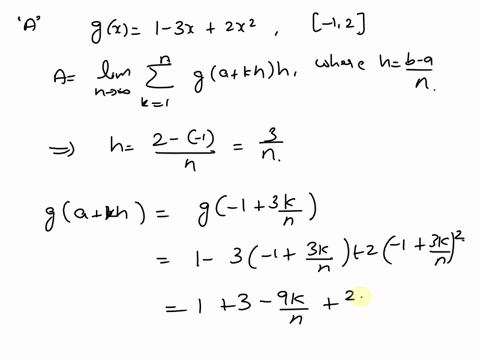 'A' g(x) = 1-3x + 2x² , [-1,2]
A = lim n→∞ Σ k=1 n g(a+kh)h, where h = b-a/n.
⇒ h = 2-(-1)/n = 3/n.
g(a+kh) = g(-1+3k/n)
= 1- 3(-1+3k/n)+2(-1+3k/n)²
= 1 +3 - 9k/n + 2